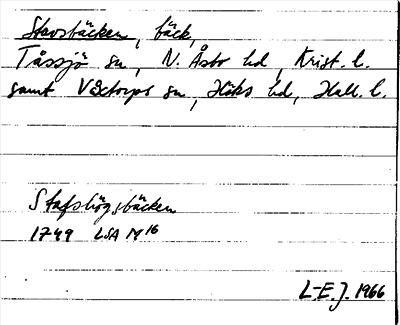 Stavsbäcken, bäck,
Tåssjö sn, N. Åsbo hd, Krist. l.
samt V Ktorps sn, Höks hd, Hall. l.
Stafshögsbäcken
1749 LSA M16
L-E.J. 1966